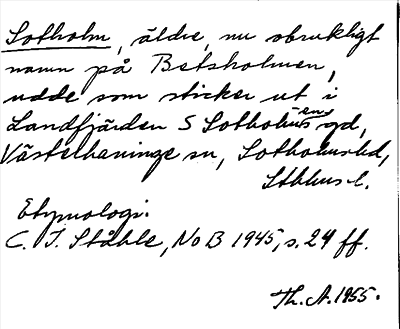 Sotholm, äldre, nu obrukligt
namn på Betsholmen,
udde som sticker ut i
Landfjärden S Sotholmens gd,
Västerhaninge sn, Sotholms hd,
Sthlms l.
Etymologi:
C. I. Ståhle, NoB 1945, s. 24 ff.
Th. A. 1955.